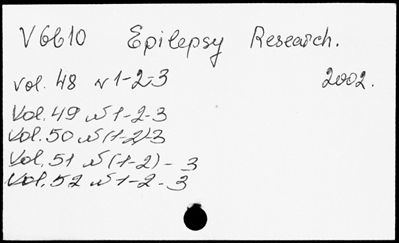 V6610 Epilepsy Research.
vol. 48 N 1-2-3 2002.
Vol. 49 N 1-2-3
Vol. 50 N (1-2)-3
Vol. 51 N (1-2) - 3
Vol. 52 N 1-2-3